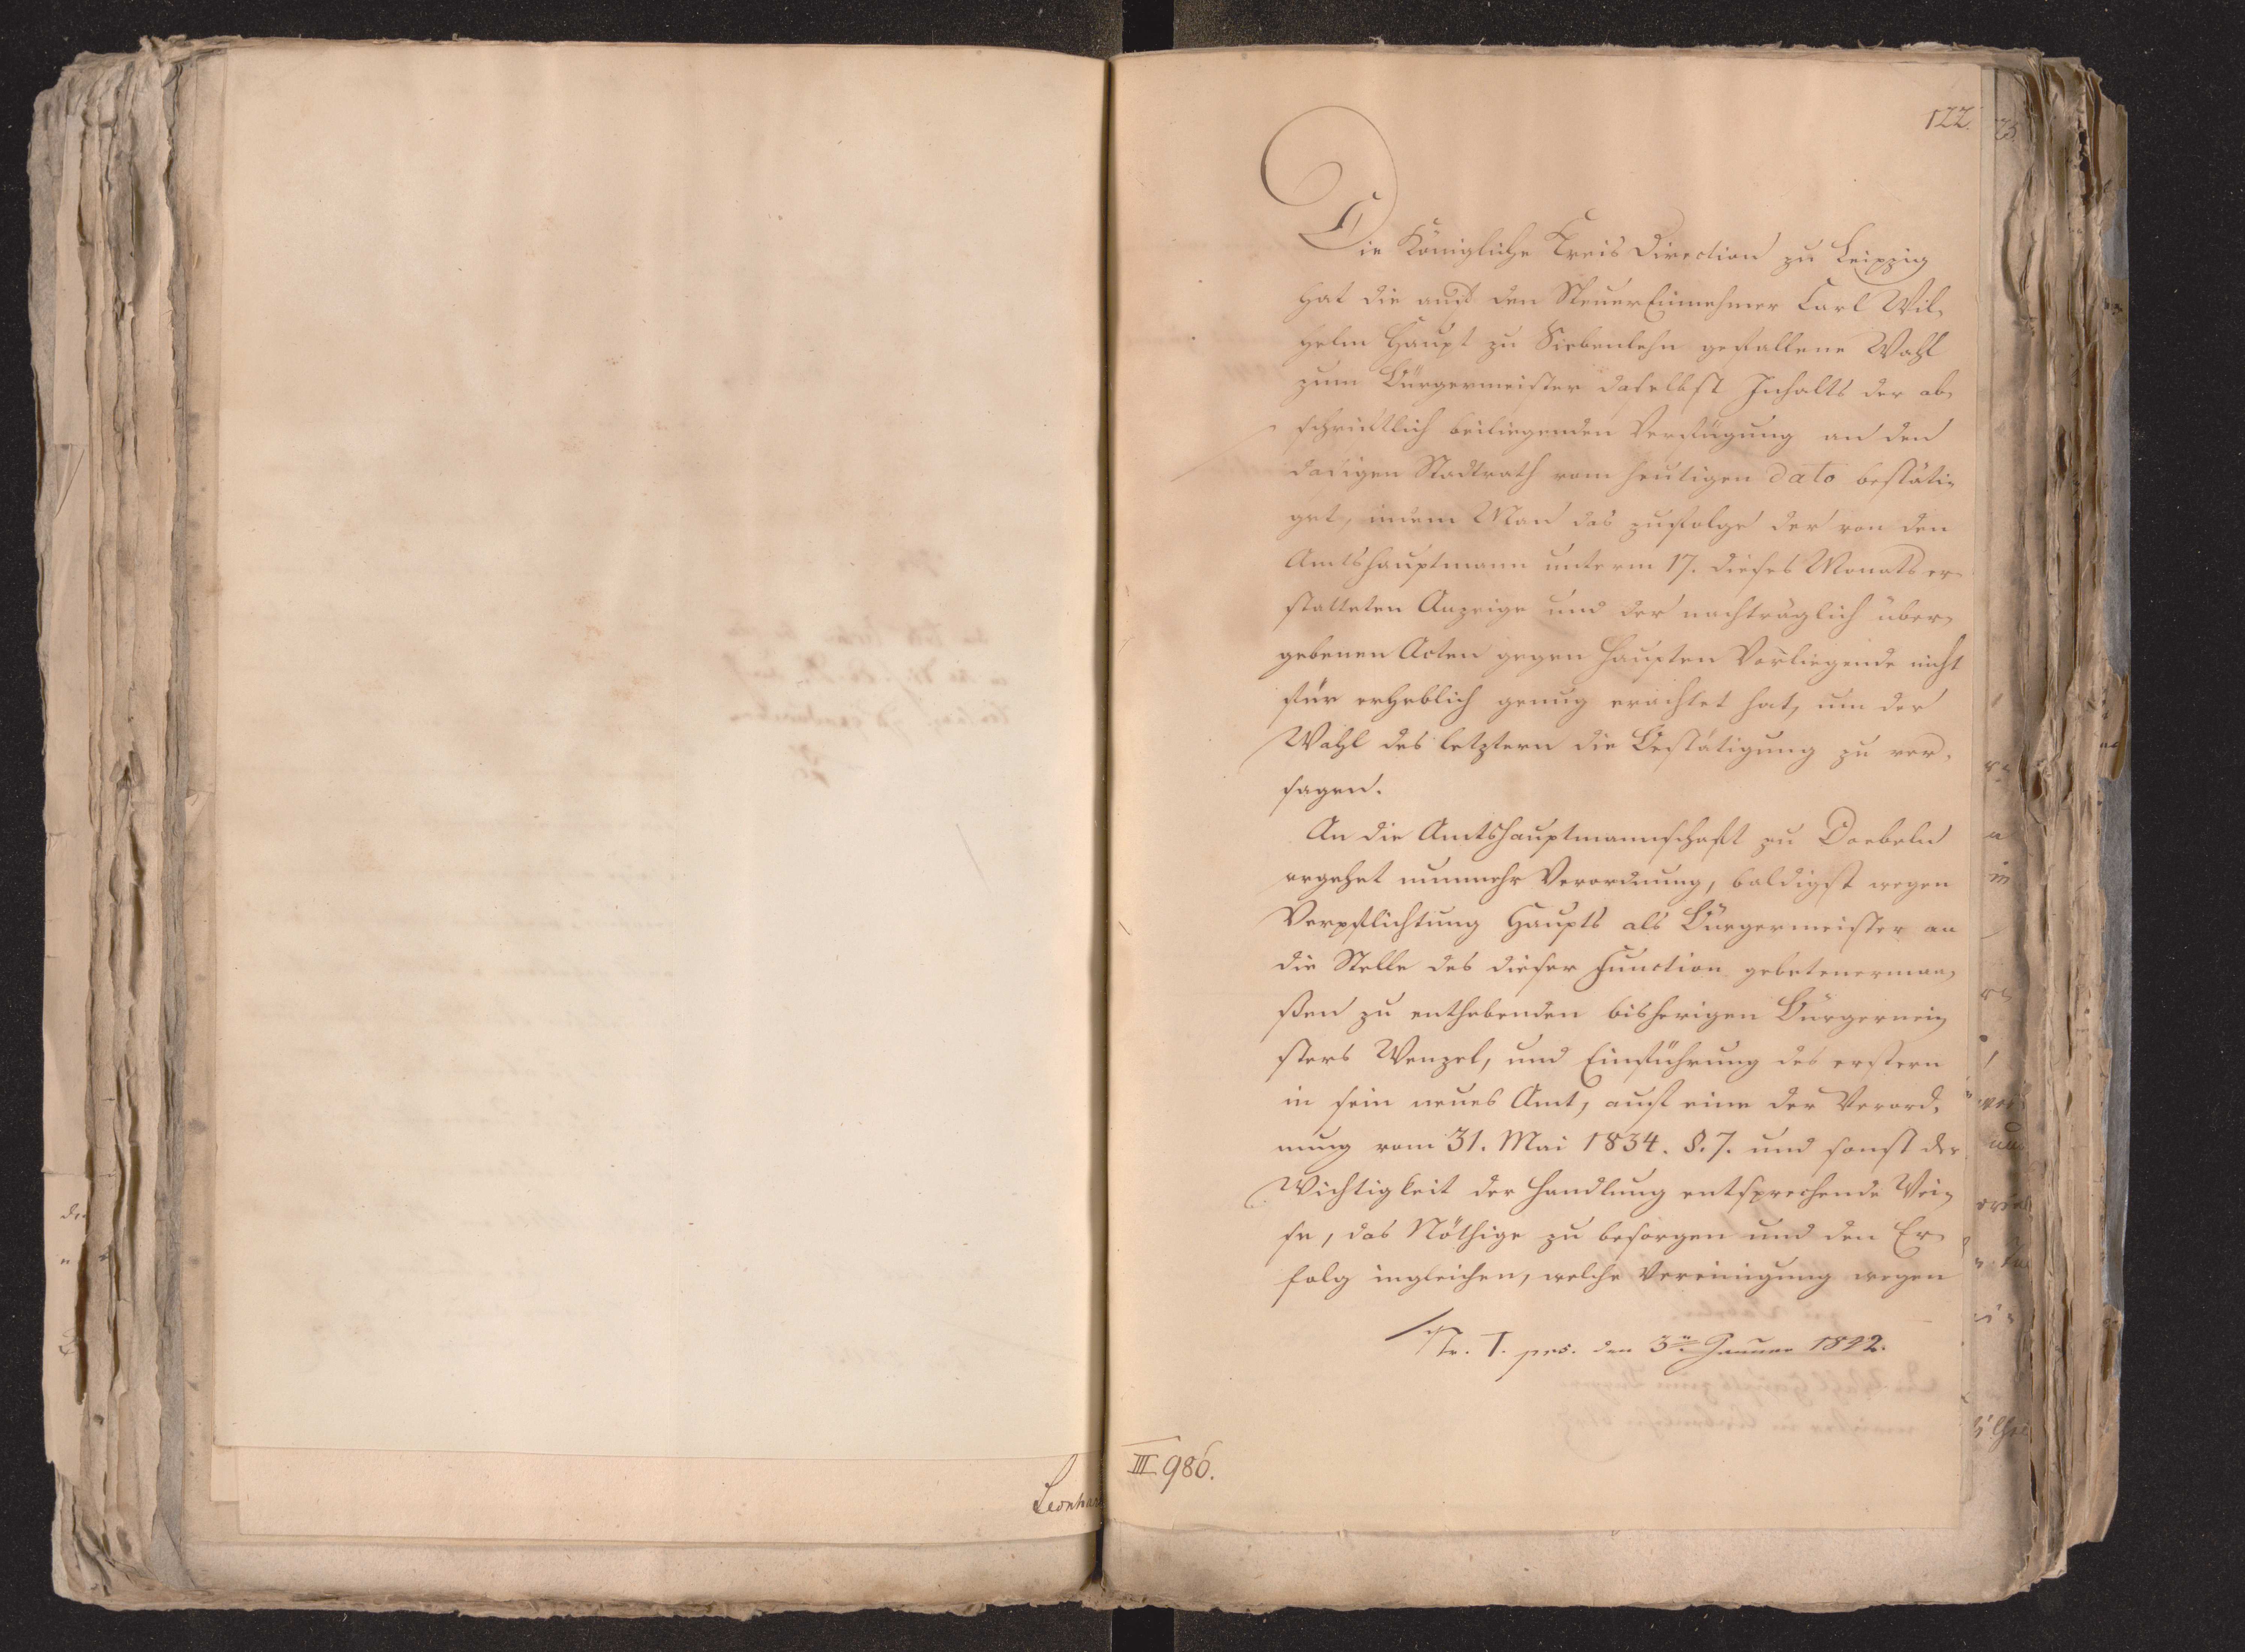 Leonhar
122.
Die Königliche Kreis Direction zu Leipzig
hat die auf den Steuer Einnehmer Carl Wil-
helm Haupt zu Siebenlehn gefallene Wahl
zum Bürgermeister daselbst Inhalts der ab-
schriftlich beiliegenden Verfügung an den
dasigen Stadtrath vom heutigen dato bestäti-
get, indem Man das zufolge der von den
Amtshauptmann unterm 17. dieses Monats er-
statteten Anzeige und der nachträglich über-
gebenen Acten gegen Haupten Vorliegende nicht
für erheblich genug erachtet hat, um der
Wahl des letztern die Bestätigung zu ver-
sagen.
An die Amtshauptmannschaft zu Doebeln
ergehet nunmehr Verordnung, baldigst wegen
Verpflichtung Haupts als Bürgermeister an
die Stelle des dieser Function gebetenermaa-
ßen zu enthebenden bisherigen Bürgermei-
sters Wenzel, und Einführung des erstern
in sein neues Amt, auf eine der Verord-
nung vom 31. Mai 1834. §. 7. und sonst der
Wichtigkeit der Handlung entsprechende Wei-
se, das Nöthige zu besorgen und den Er-
folg ingleichen, welche Vereinigung wegen
Nr. 1. prs. den 3n Januar 1842.
III 986.